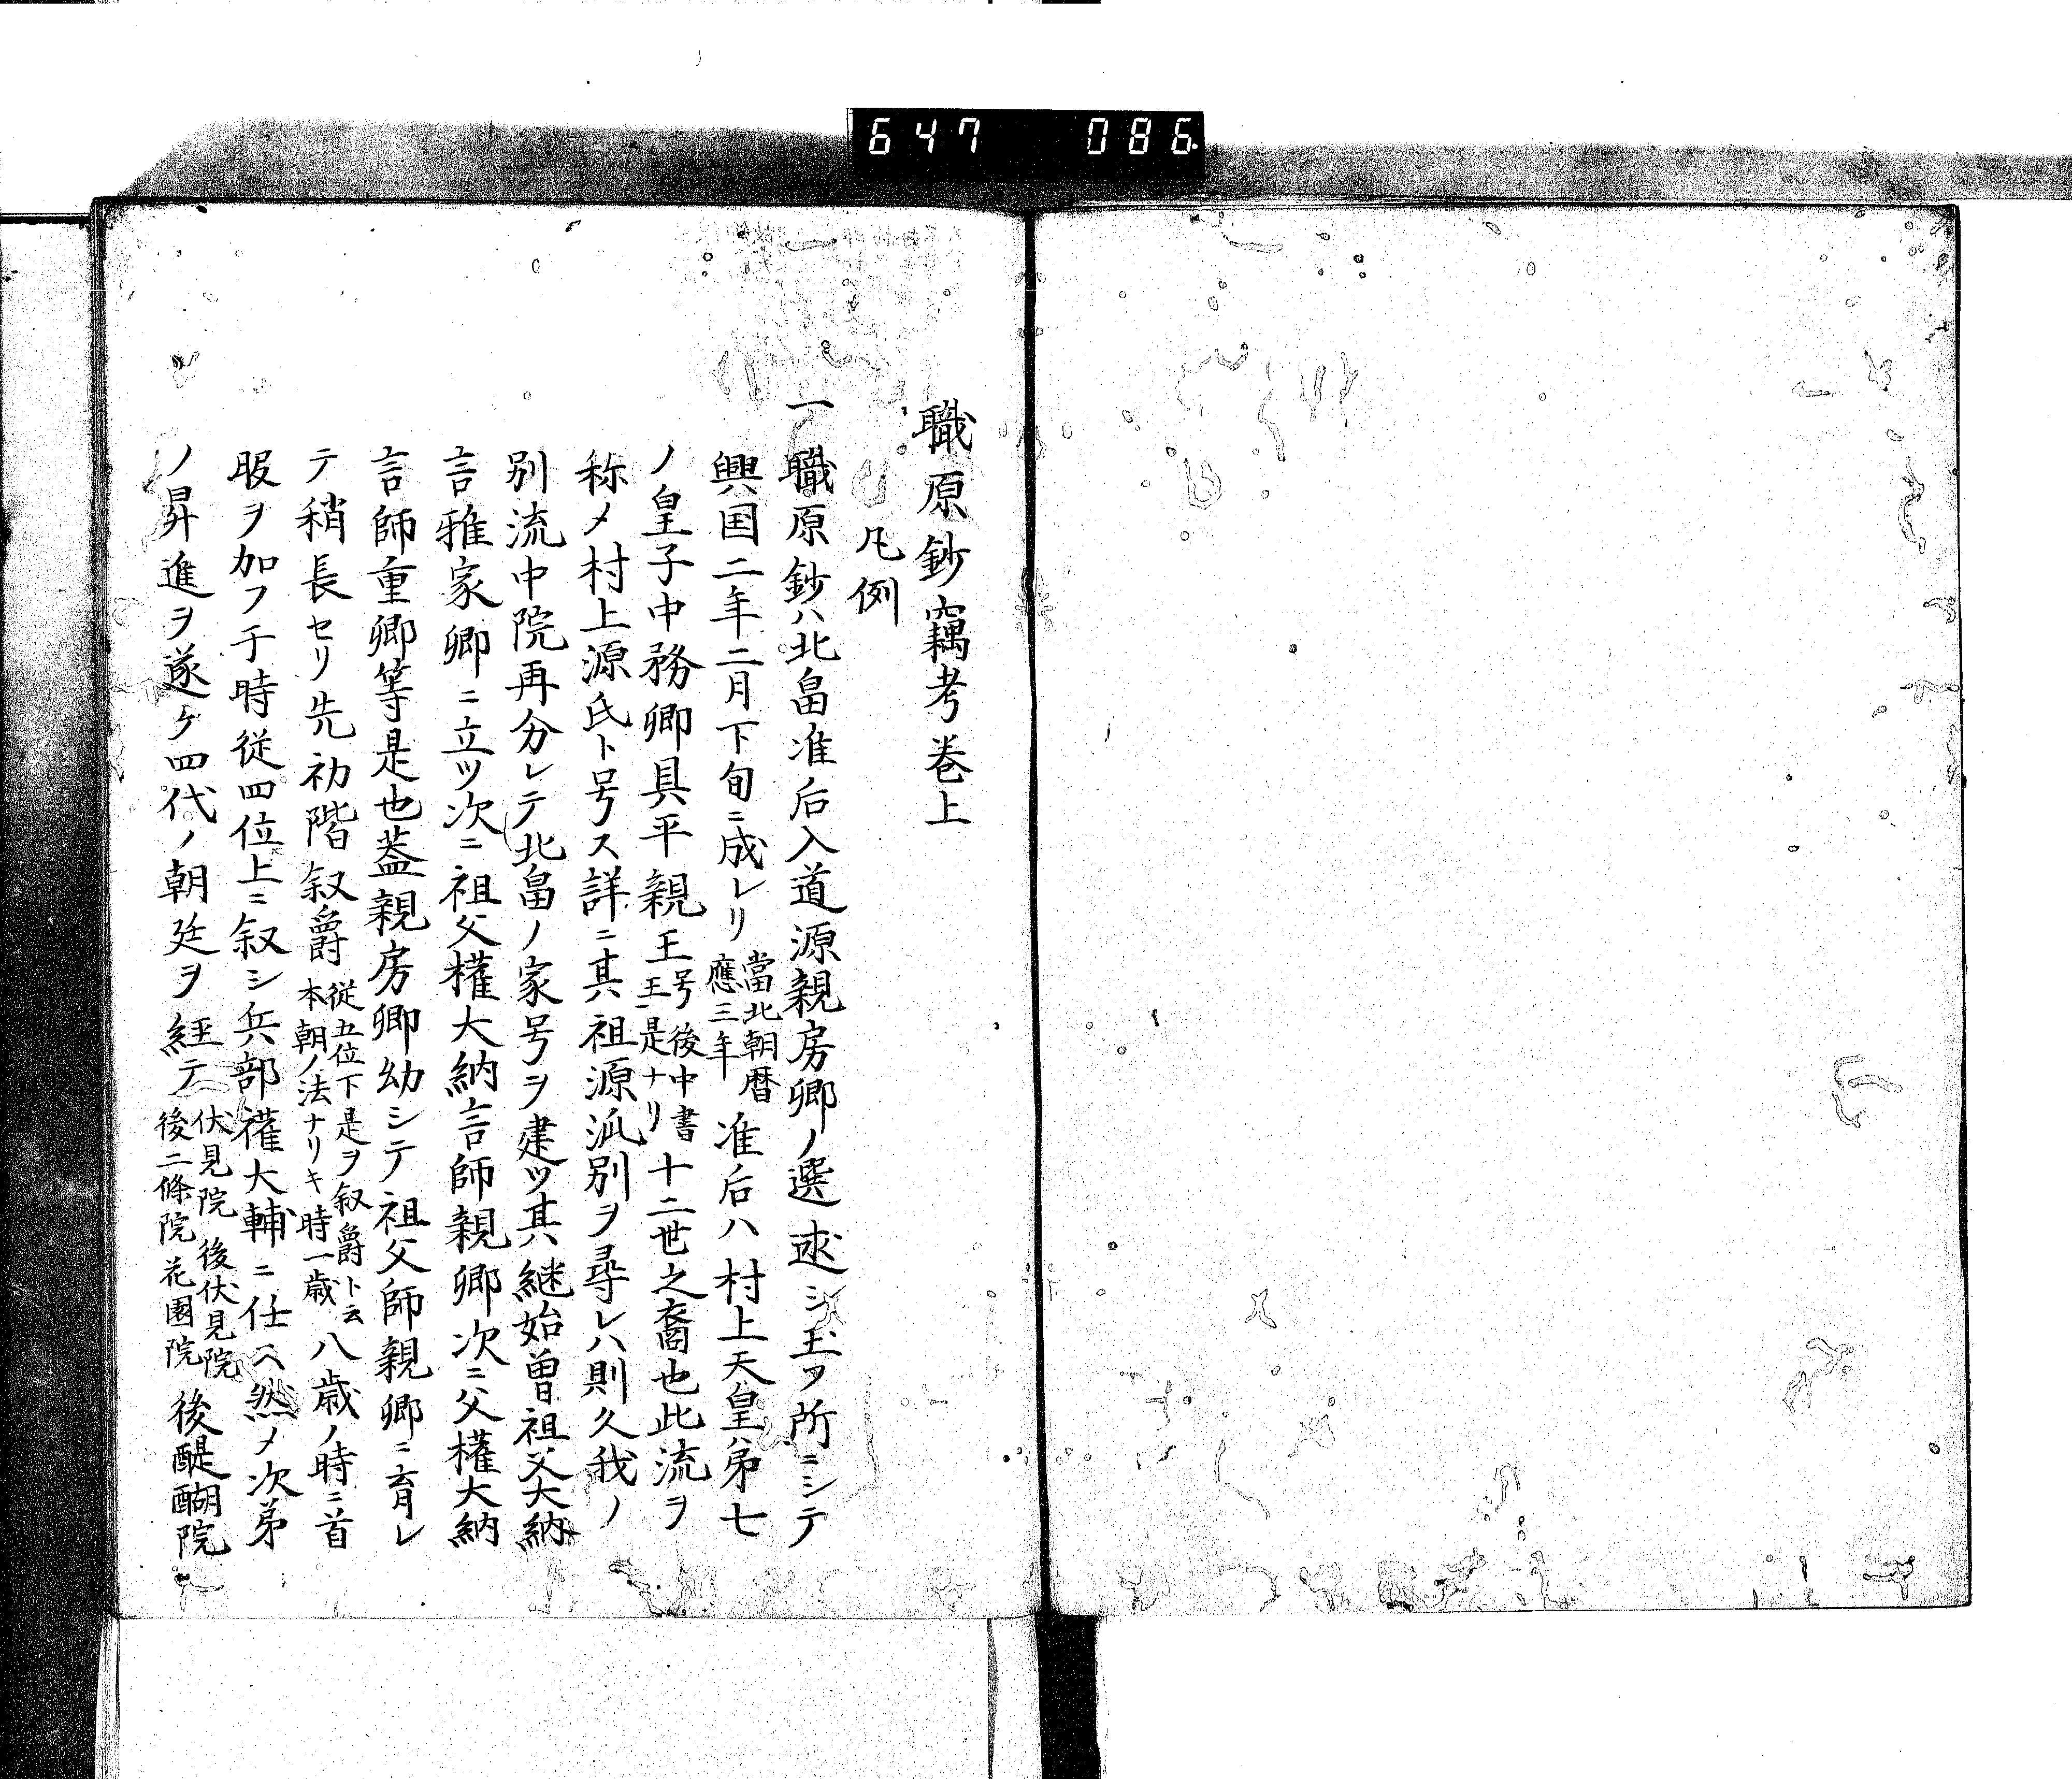 647 086
職原鈔竊考巻上
凡例
一職原鈔ハ北畠准后入道源親房卿ノ選述シ玉フ所ニシテ
興国二年二月下旬ニ成レリ當北朝暦應三年准后ハ村上天皇第七
ノ皇子中務卿具平親王号後中書王是ナリ十二世之裔也此流ヲ
称メ村上源氏ト号ス詳ニ其祖源派別ヲ尋レハ則久我ノ
別流中院再分レテ北畠ノ家号ヲ建ツ其ハ継始曽祖父大納
言雅家卿ニ立ツ次ニ祖父權大納言師親卿次ニ父權大納
言師重卿等是也蓋親房卿幼シテ祖父師親卿ニ育レ
テ稍長セリ先初階叙爵従五位下是ヲ叙爵ト云本朝ノ法ナリキ時一歳八歳ノ時ニ首
服ヲ加フ于時従四位上ニ叙シ兵部權大輔ニ任ス然メ次第
ノ昇進ヲ遂ケ四代ノ朝廷ヲ経テ伏見院後伏見院後二條院花園院後醍醐院